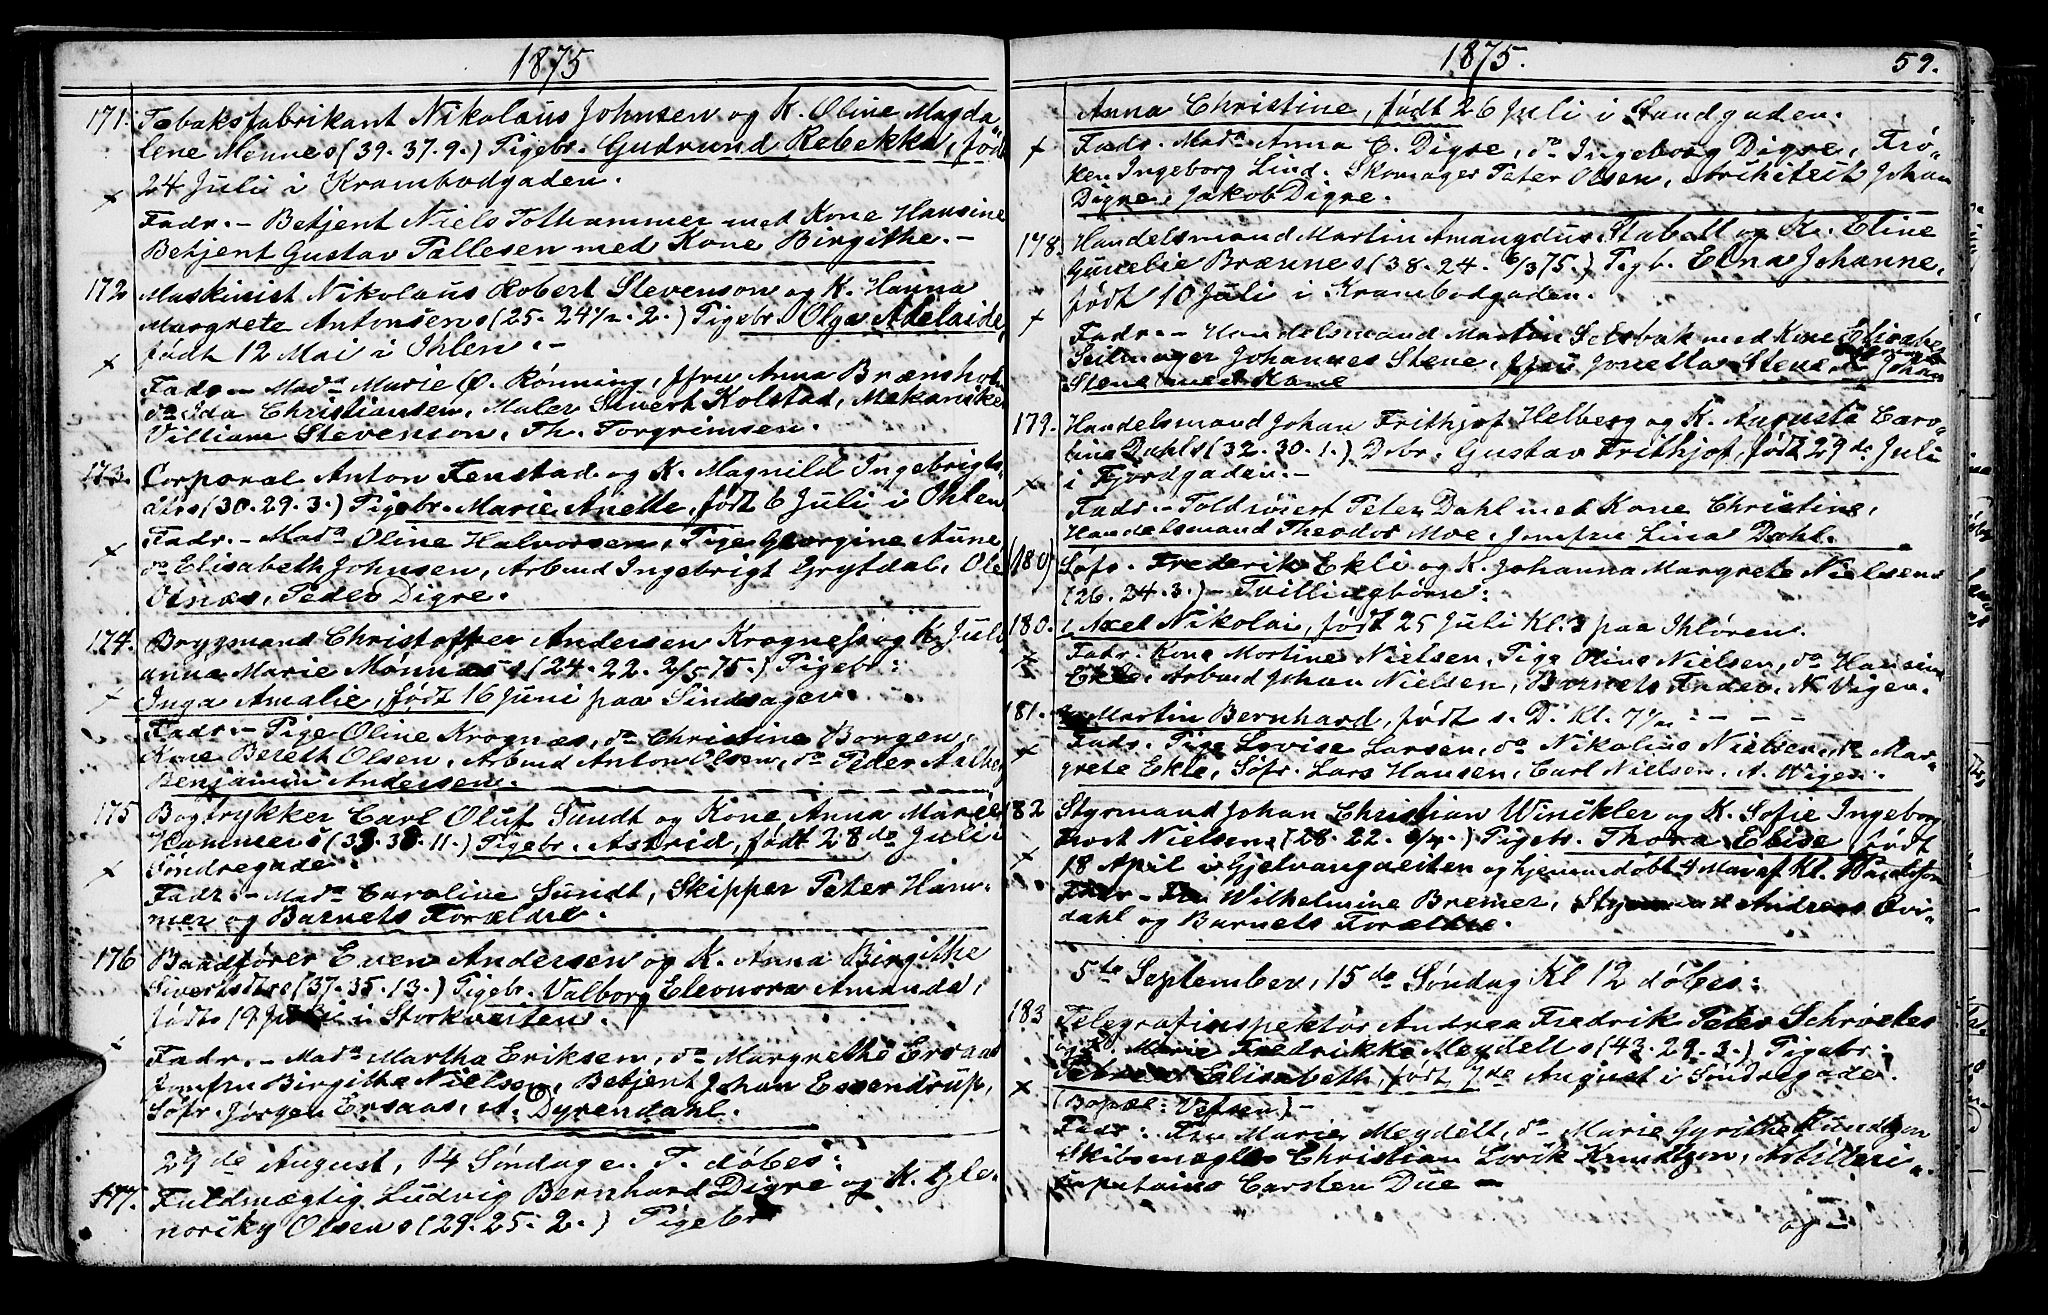 1875
171. Tobaksfabrikant Nikolaus Johnsen og K. Oline Magda
lene Mennes (39. 37. 9.) Pigebr. Gudrund Rebekka, født
24 Juli i Krambodgaden.
Fadr. – Betjent Niels Tothammer med Kone Hansine
Betjent Gustav Pallesen med Kone Birgithe. –
172 Maskinist Nikolaus Robert Stevenson og K. Hanna
Margrete Antonsens (25. 24 1/2. 2.) Pigebr. Olga Adelaide,
født 12 Mai i Ihlen. –
Fadr – Madm Marie Ø. Rønning, Jfru Anna Bramsholm
do Ida Christiansen, Maler Sivert Kolstad, Mekaniker
Villiam Stevenson. Th. Torgrimsen.
173. Corporal Anton Fenstad og K. Magnild Ingebrigts-
dtrs (30. 29. 3.) Pigebr. Marie Anette, født 6 Juli i Ihlen
Fadr. – Madm Oline Halvorsen, Pige Georgine Aune
do Elisabeth Johnsen, Arbmd Ingebrigt Grytdal, Ole
Olnæs, Peder Digre.
174. Brygmand Christoffer Andersen Krognes og K. Juli
anna Marie Mønnes (24. 22. 2/5 75.) Pigebr:
Inga Amalie, født 16 Juni paa Sindsager.
Fadr. – Pige Oline Krognæs, do Christine Borgen,
Kone Bereth Olsen, Arbmd Anton Olsen, do Peder
Benjamin Andersen.
175 Bogtrykker Carl Oluf Sundt og Kone Anna Marie
Hammers (33. 38. 11.) Pigebr. Astrid, født 28de Juli i
Søndregade.
Fadr. – Madm Caroline Sundt, Skipper Peter Ham-
mer og Barnets Forældre.
176 Baadfører Even Andersen og K. Anna Birgithe
Sivertsdtrs (37. 35. 13.) Pigebr. Valborg Eleonora Amanda,
født 19 Juli i Storkveiten.
Fadr. – Madm Martha Eriksen, do Margrethe Ersaas
Jomfru Birgitha Nielsen, Betjent Johan Essendrup,
Søfr. Jørgen Ersaas, A. Dyrendahl.
29de August, 14 Søndag e. T. døbes:
177. Fuldmægtig Ludvig Bernhard Digre og K. Ele
noriky Olsens (29. 25. 2.) Pigebr
1875. 59.
Anna Christine, født 26 Juli i Sandgaden.
Fadr. Madm Anna C. Digre, do Ingeborg Digre, Frø-
ken Ingeborg Lind. Skomager Peter Olsen, Arkitekt Johan
Digre, Jakob Digre.
178. Handelsmand Martin Amangdus Stabell og K. Eline
Gurelie Brænnes (38. 24. 6/3 75.) Pigb. Elna Johanne,
født 10 Juli i Krambodgaden.
Fadr. – Handelsmand Martin Selsbak med Kone Elisabet
Seilmager Johannes Stene, Jfru Jonetta Stene Johan
Stene med Kone
179. Handelsmand Johan Frithjof Helberg og K. Augusta Caro-
line Dahls (32. 30. 1.) Dbr. Gustav Frithjof, født 29de Juli
i Fjordgaden. –
Fadr. – Toldroiert Peter Dahl med Kone Christine,
Handelsmand Theodor Moe, Jomfru Lina Dahl.
(180) Søfr. Frederik Ekli og K. Johanna Margrete Nielsens
(26. 24. 3.) – Tvillingbørn:
180. 1, Axel Nikolai, født 25 Juli Kl. 3 paa Ihløren.
Fadr: Kone Martine Nielsen, Pige Oline Nielsen, do Hansine
Ekle, Arbmd Johan Nielsen, Barnets Fader, N. Vigen.
181. 2, Martin Bernhard, født s. D. Kl. 7 1/2 – – –
Fadr. Pige Lovise Larsen, do Nikoline Nielsen, do Mar-
grete Ekle, Søfr. Lars Hansen, Carl Nielsen, A. Vigen.
182 Styrmand Johan Christian Winckler og K. Sofie Ingeborg
Nielsens (28. 22. 9/4.) Pigebr. Thora Elise født
18 April i Gjelvangveiten og hjemmedøbt 4 Mai af Kl.
Fadr – Fru Wilhelmine Bremer, Styrmand Andreas Qvi-
dahl og Barnets Forældre.
5te September, 15de Søndag Kl 12 døbes:
183 Telegrafinspektør Andrea Fredrik Peter Schrøeters
og K. Marie Fredrikke Meydells (43. 29. 3.) Pigebr:
Elisabeth, født 7de August i Søndregade.
(Bopæl: Vefsen) –
Fadr: Fru Marie Meydell, do Marie Gyrithe Knudtzon
Skibsmægler Christian Lorik Knudtzon, Artilleri-
capitaine Carsten Due –
og –